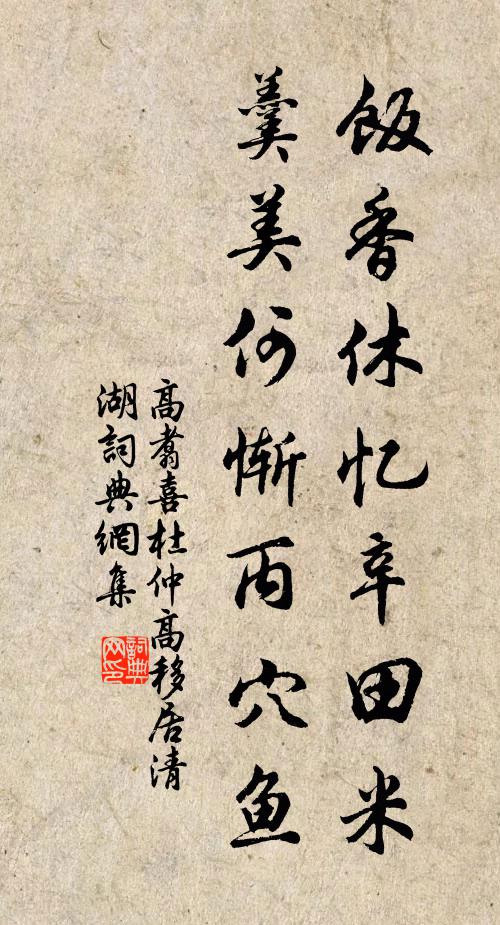 飯香休忆辛田米
羹美何惭丙穴鱼
高翥喜杜仲高移居清
湖詞典網集
詞典
网印